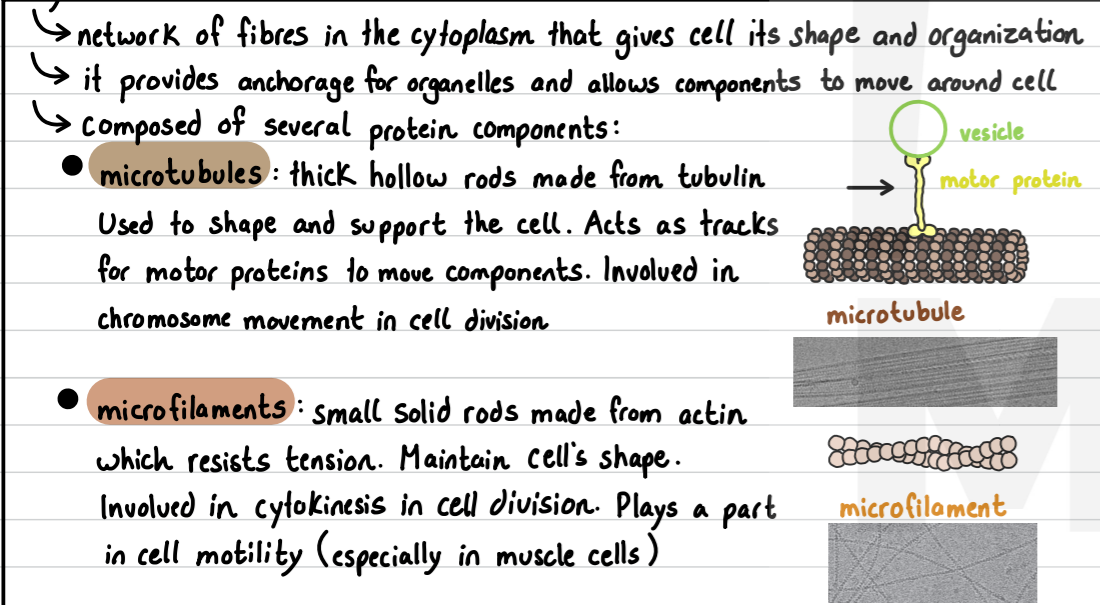 network of fibres in the cytoplasm that gives cell its shape and organization
it provides anchorage for organelles and allows components to move around cell
Composed of several protein components:
microtubules: thick hollow rods made from tubulin
Used to shape and support the cell. Acts as tracks
for motor proteins to move components. Involved in
chromosome movement in cell division
vesicle
motor protein
microtubule
microfilaments: small solid rods made from actin
which resists tension. Maintain cell's shape.
Involved in cytokinesis in cell division. Plays a part
in cell motility (especially in muscle cells)
microfilament